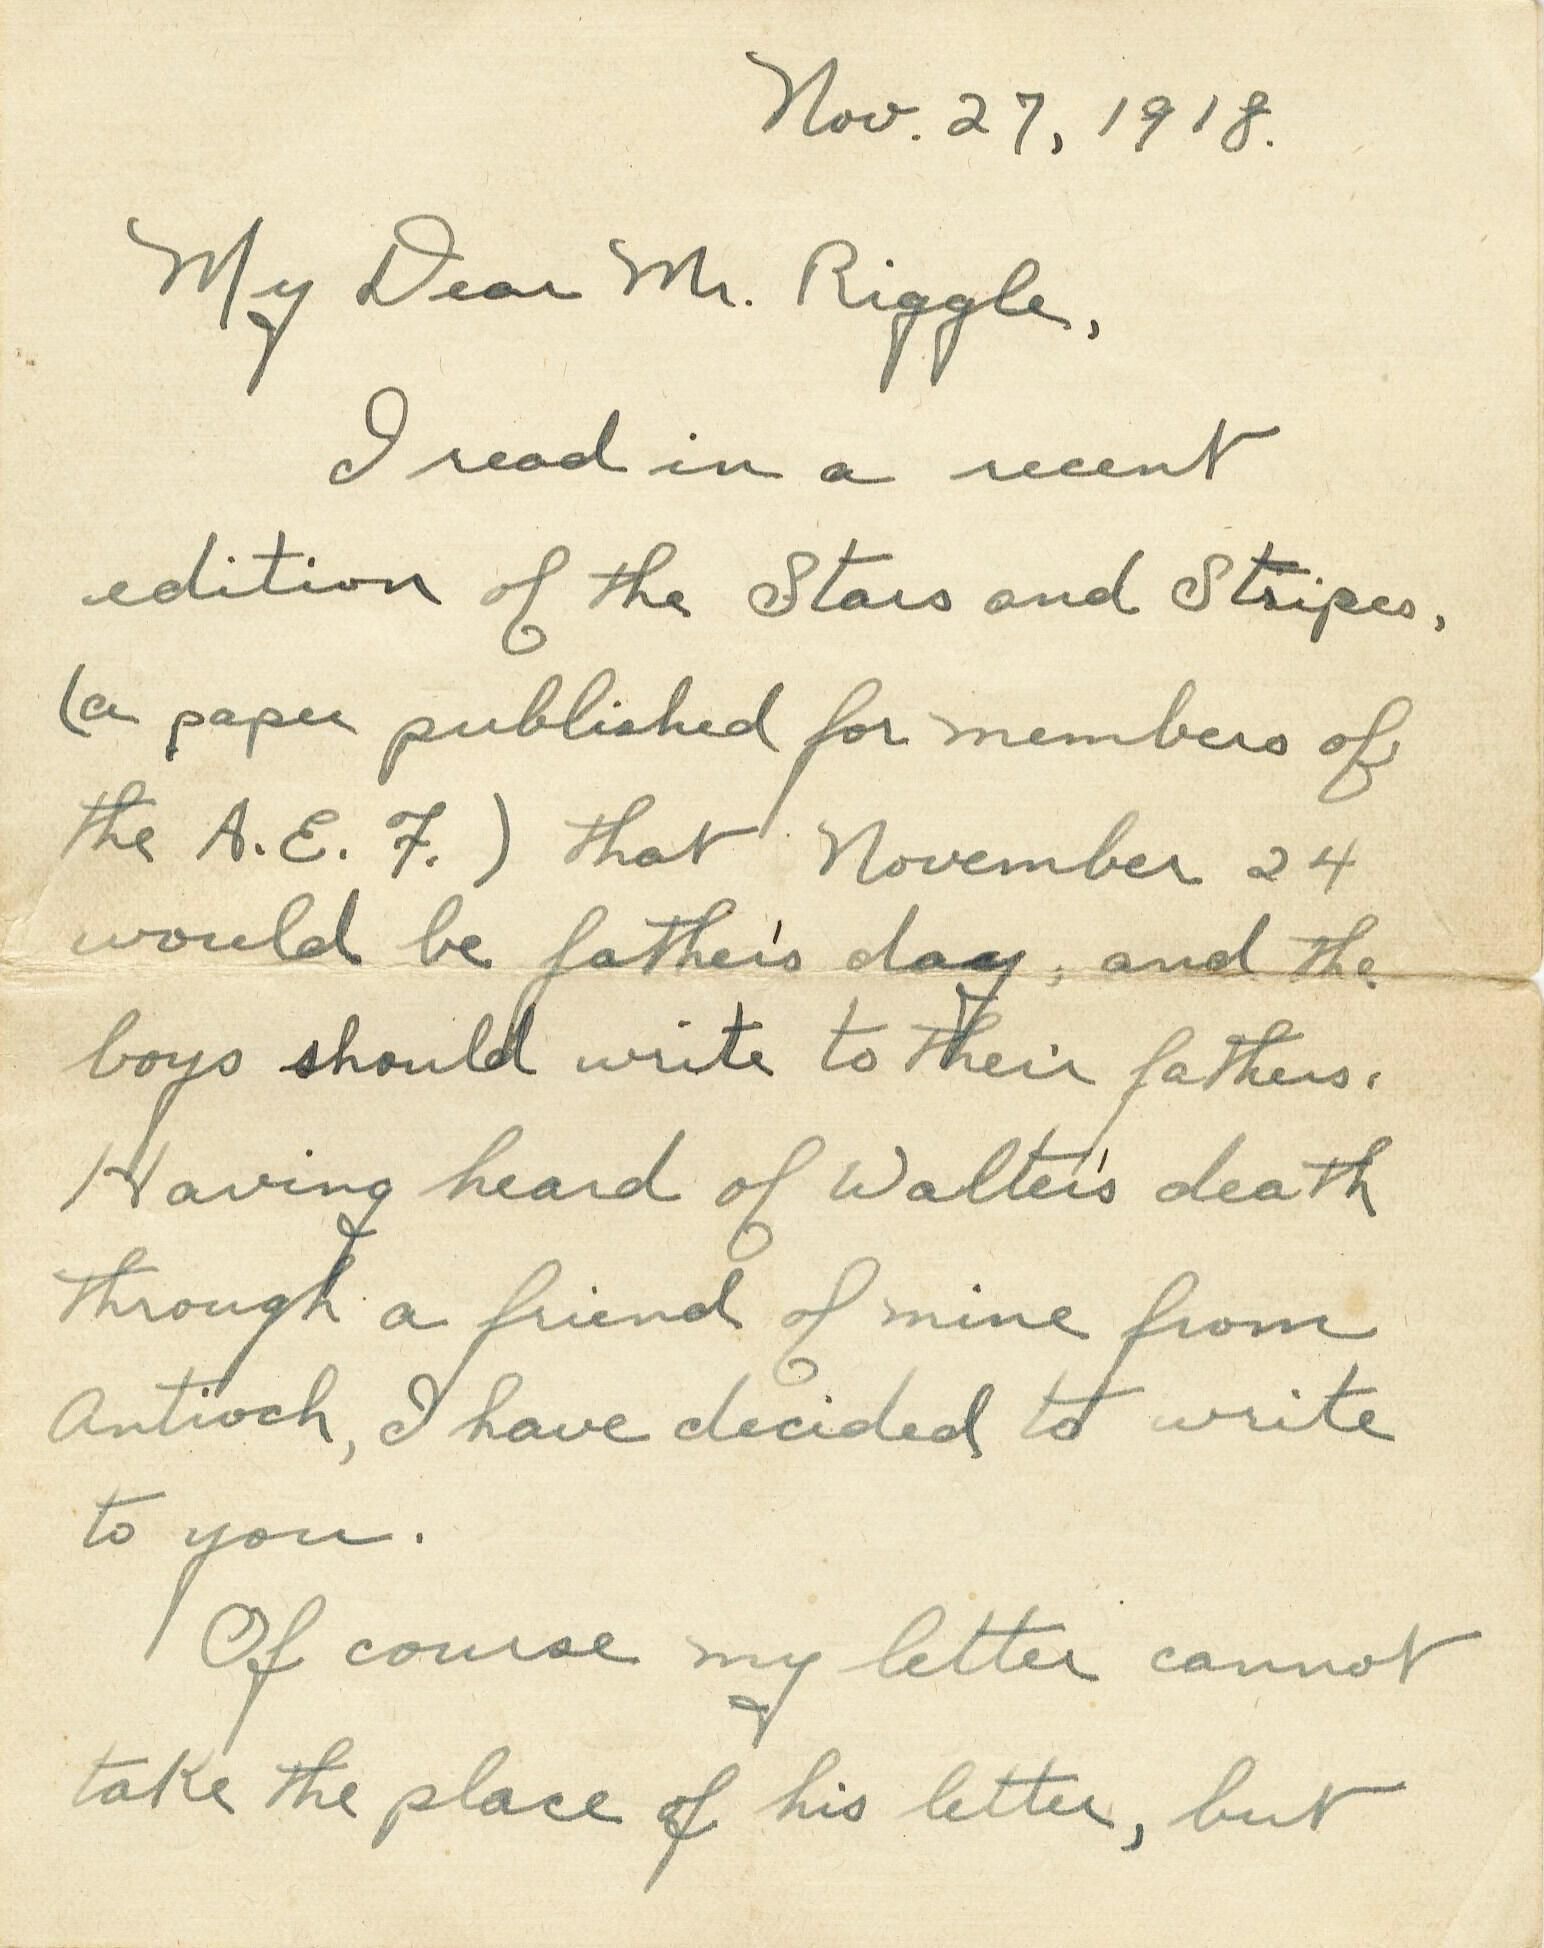 Nov. 27, 1918.
My Dear Mr. Riggle,
I read in a recent
edition of the Stars and Stripes,
(a paper published for members of
the A. E. F.) that November 24
would be father's day, and the
boys should write to their fathers.
Having heard of Walter's death
through a friend of mine from
Antioch, I have decided to write
to you.
Of course my letter cannot
take the place of his letter, but